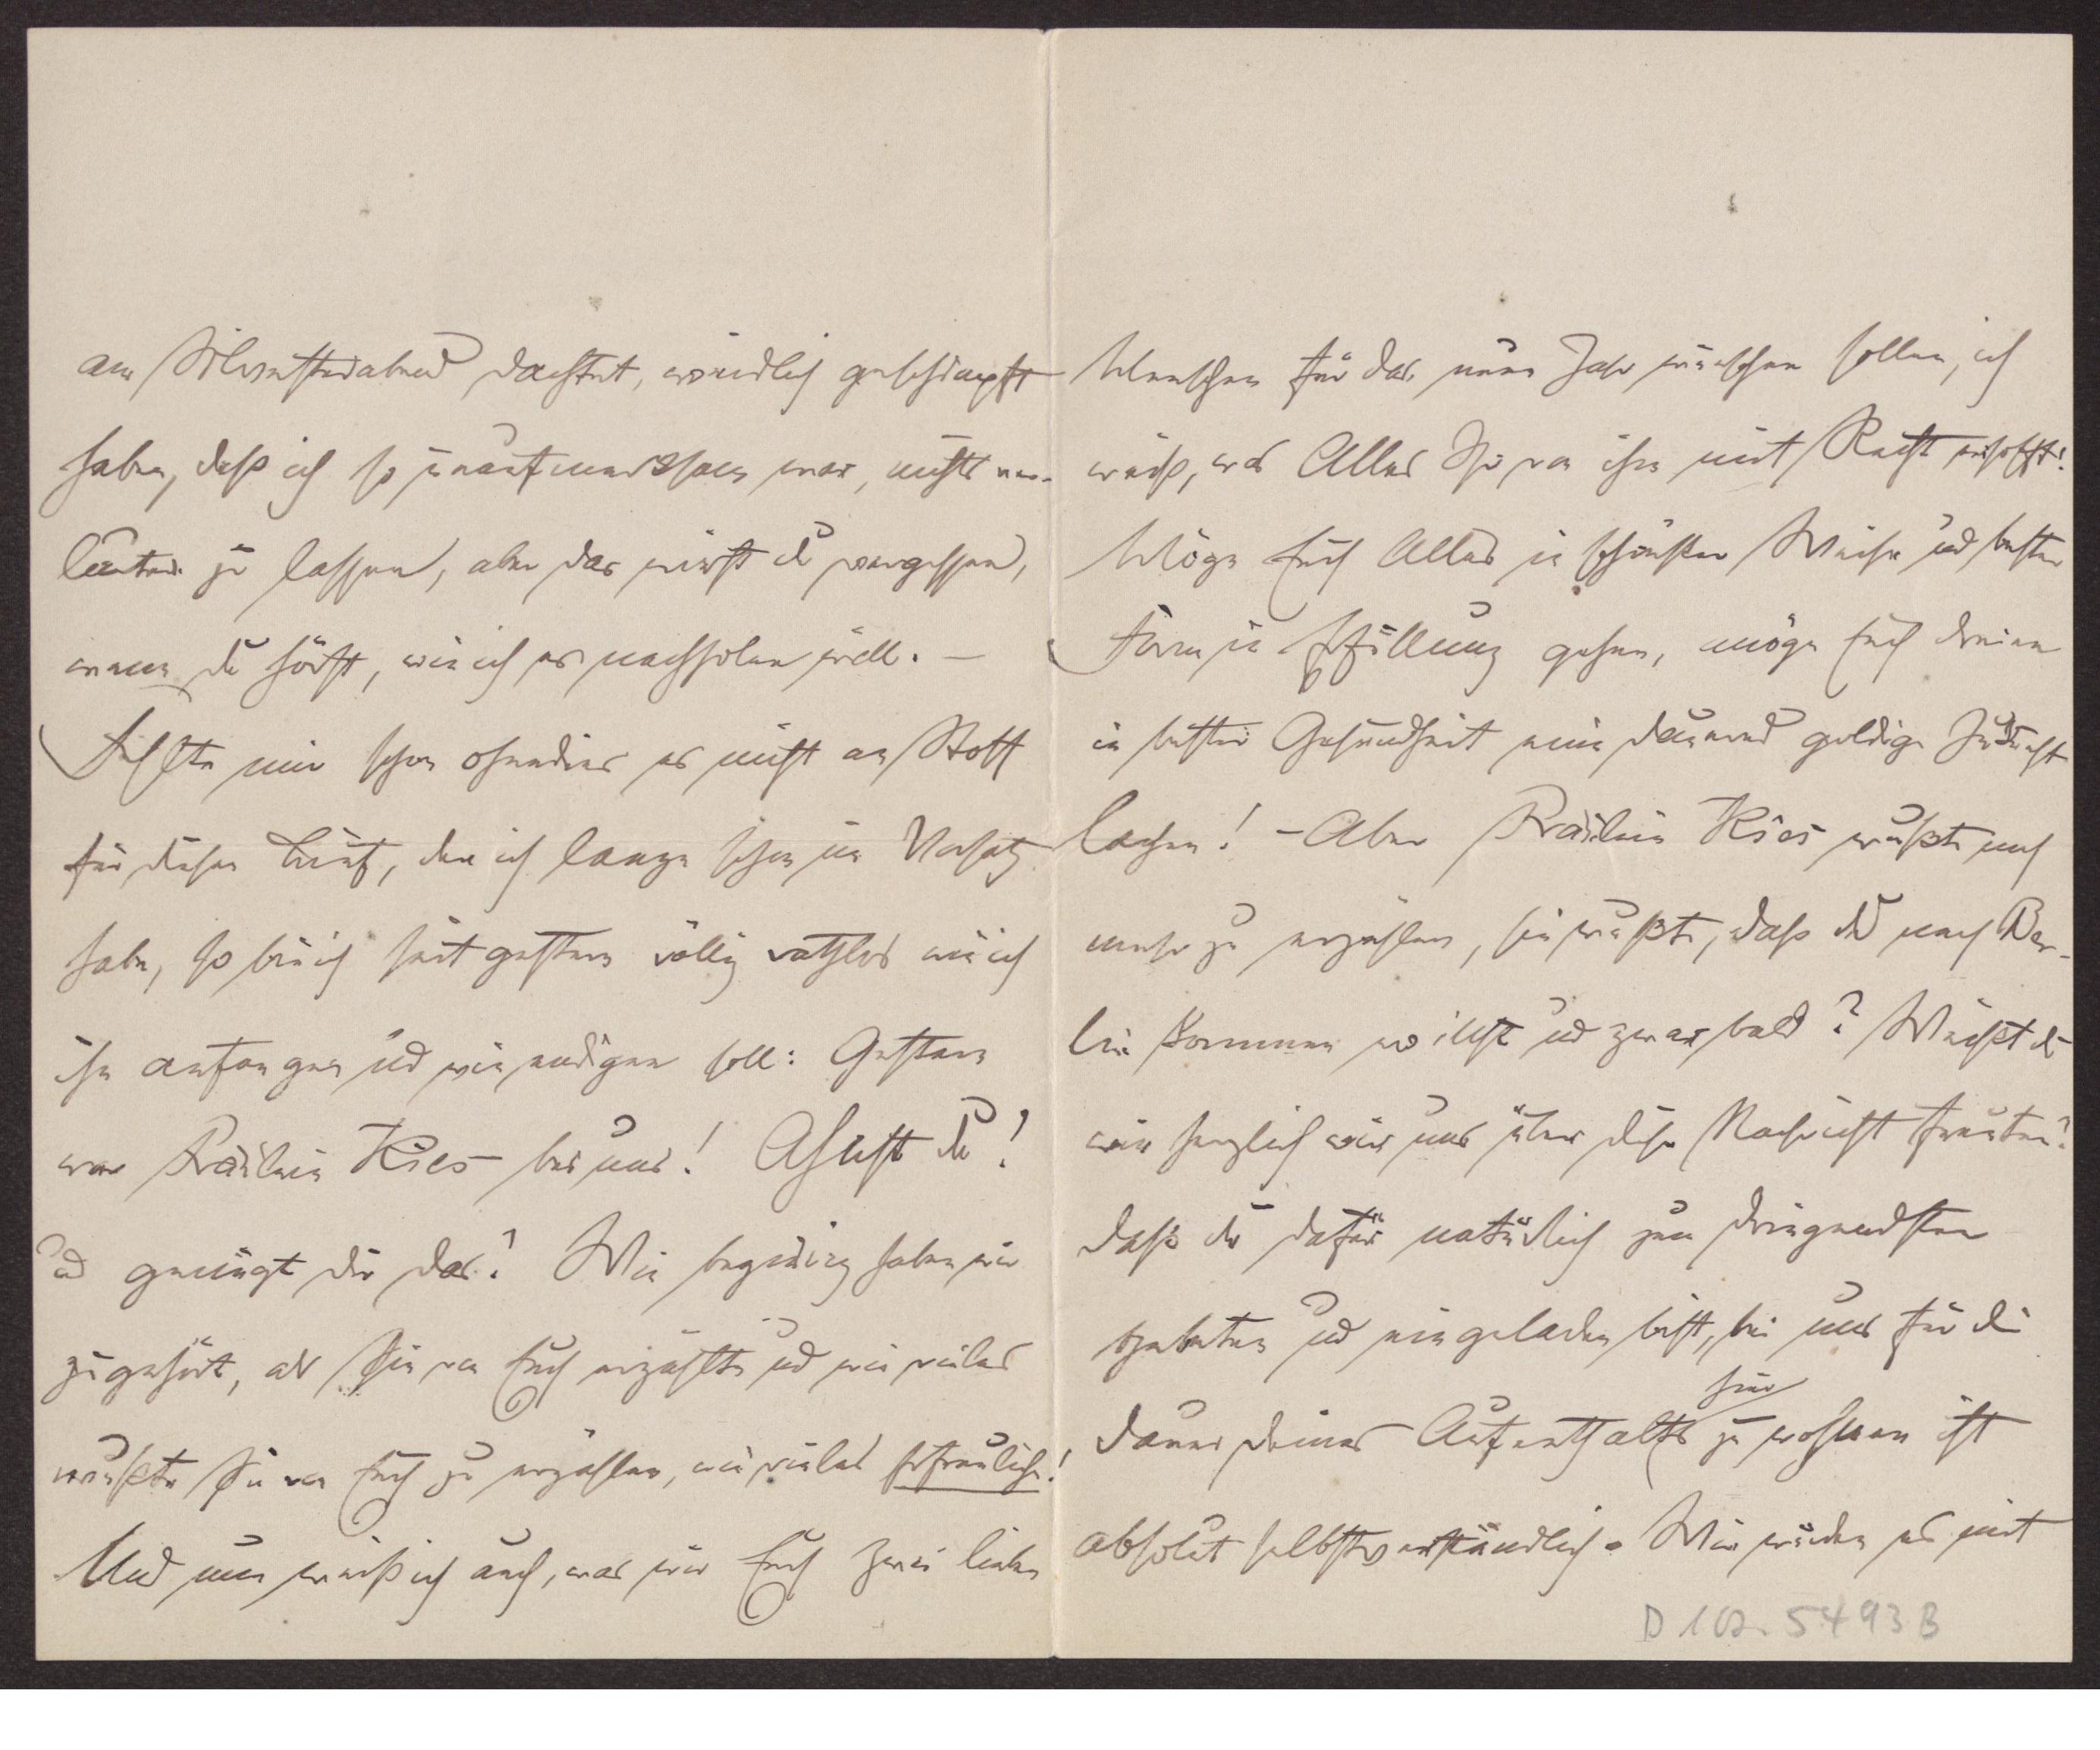 am Silvesterabend dachtet, weidlich geschimpft
haben, daß ich so unaufmerksam war, nichts ver-
lauten zu lassen, aber das wirst du vergessen,
wenn du hörst, wie ich es nachholen will. —
Fehlte mir schon ohnedies es nicht an Stoff
für diesen Brief, den ich lange schon im Vorsatz
habe, so bin ich seit gestern völlig rathlos wie ich
ihn anfangen und wie endigen soll: Gestern
war Fräulein Kies bei uns! Ahnst du!
und genügt dir das? Wie begierig haben wir
zugehört, als sie von Euch erzählte und wie vieles
wußte sie von Euch zu erzählen, wie vieles Erfreuliche!
Und nun weiß ich auch, was wir Euch zwei lieben
Menschen für das neue Jahr wünschen sollen, ich
weiß, was Alles Ihr von ihm mit Recht erhofft!
Möge Euch Alles in schönster Weise und bester
Form in Erfüllung gehen, möge Euch dreien
in bester Gesundheit eine dauernd goldige Zukunft
lachen! – Aber Fräulein Kies wußte noch
mehr zu erzählen, sie wußte, daß du nach Ber-
lin kommen willst und zwar bald? Weißt du
wie herzlich wir uns über diese Nachricht freuten?
daß du dafür natürlich zum dringendsten
gebeten und eingeladen bist, bei uns für die
Dauer deines Aufenthalts hier zu wohnen ist
absolut selbstverständlich. Wir würden es mit
D 102. 5493 B